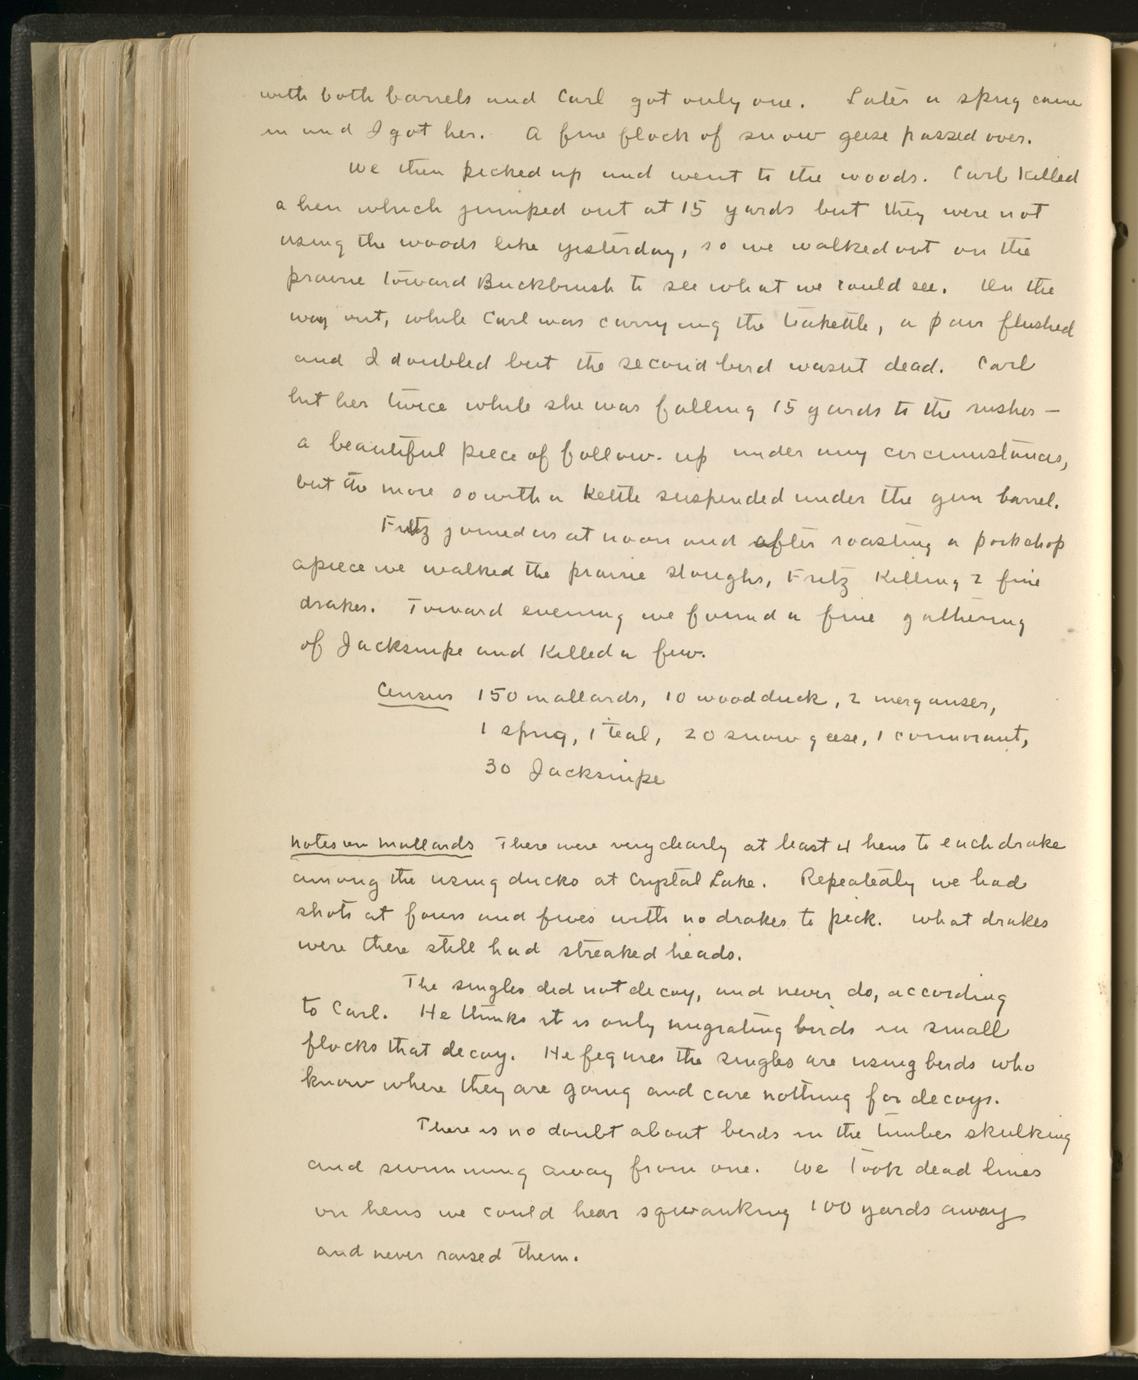 with both barrels and Carl got only one. Later a sprig came
in and I got her. A fine flock of snow geese passed over.
We then picked up and went to the woods. Carl killed
a hen which jumped out at 15 yards but they were not
using the woods like yesterday, so we walked out on the
prairie toward Buckbrush to see what we could see. On the
way out, while Carl was carrying the teakettle, a pair flushed
and I doubled but the second bird wasnt dead. Carl
hit her twice while she was falling 15 yards to the rushes —
a beautiful piece of follow-up under any circumstances,
but the more so with a kettle suspended under the gun barrel.
Fritz joined us at noon and after roasting a porkchop
apiece we walked the prairie sloughs, Fritz killing 2 fine
drakes. Toward evening we found a fine gathering
of Jacksnipe and killed a few.
Census 150 mallards, 10 woodduck, 2 merganser,
1 sprig, 1 teal, 20 snow geese, 1 cormorant,
30 Jacksnipe
Notes on Mallards There were very clearly at least 4 hens to each drake
among the using ducks at Crystal Lake. Repeatedly we had
shots at fours and fives with no drakes to pick. What drakes
were there still had streaked heads.
The singles did not decoy, and never do, according
to Carl. He thinks it is only migrating birds in small
flocks that decoy. He figures the singles are using birds who
know where they are going and care nothing for decoys.
There is no doubt about birds in the timber skulking
and swimming away from one. We took dead lines
on hens we could hear squawking 100 yards away
and never raised them.